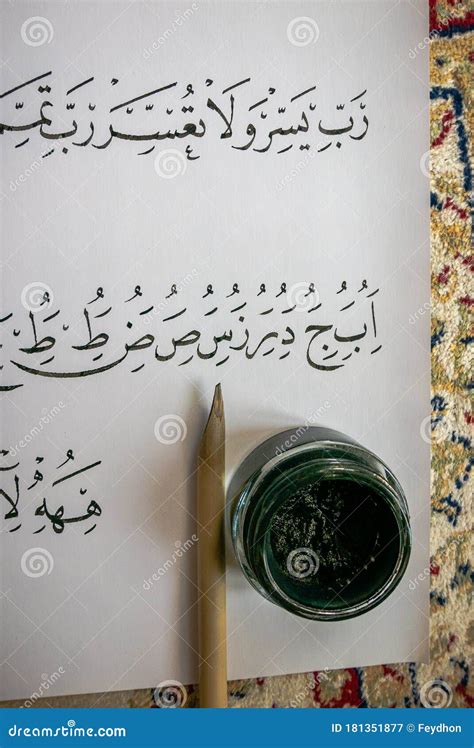 رَبِّ يَسِّرْ وَلَا تُعَسِّرْ رَبِّ
اَ بَِجَُِ دَُِ رَُِ زَُِ سَُِ صَُِ ضَُِ طَُِ ظَُِ
dreamstime.com
ID 181351877 © Feydhon